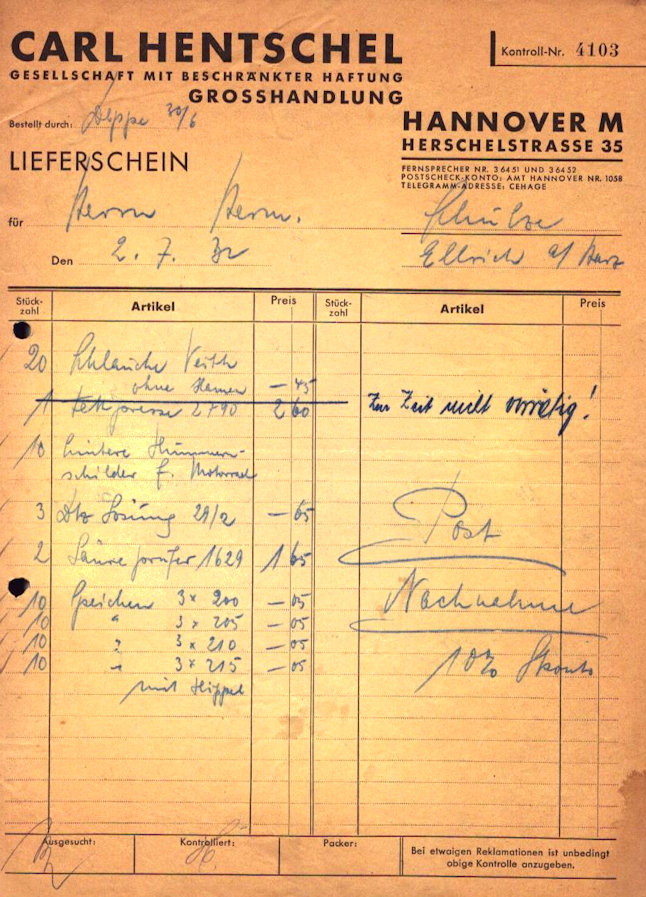 CARL HENTSCHEL
GESELLSCHAFT MIT BESCHRÄNKTER HAFTUNG
GROSSHANDLUNG
Kontroll-Nr. 4103
HANNOVER M
HERSCHELSTRASSE 35
FERNSPRECHER NR. 36451 UND 36452
POSTSCHECK-KONTO: AMT HANNOVER NR. 1058
TELEGRAMM-ADRESSE: CEHAGE
Bestellt durch: Deppe 30/6
LIEFERSCHEIN
für Herrn Herm. Schulze
Den 2. 7. 32 Ellrich a/ Harz
Stück-zahl Artikel Preis Stück-zahl Artikel Preis
20 Schläuche Veith
ohne Namen — 45
1 Fettpresse 2790 2 60 Zur Zeit nicht vorrätig!
10 hintere Nummern-
schilder f. Motorrad
3 Dtz Lösung 29/2 — 65
Post
2 Säureprüfer 1629 1 65
Nachnahme
10 Speichen 3 x 200 — 05
10 " 3 x 205 — 05
10 " 3 x 210 — 05
10 " 3 x 215 — 05
10% Skonto
mit Nippel
Ausgesucht: Kontrolliert: Packer:
Bei etwaigen Reklamationen ist unbedingt
obige Kontrolle anzugeben.